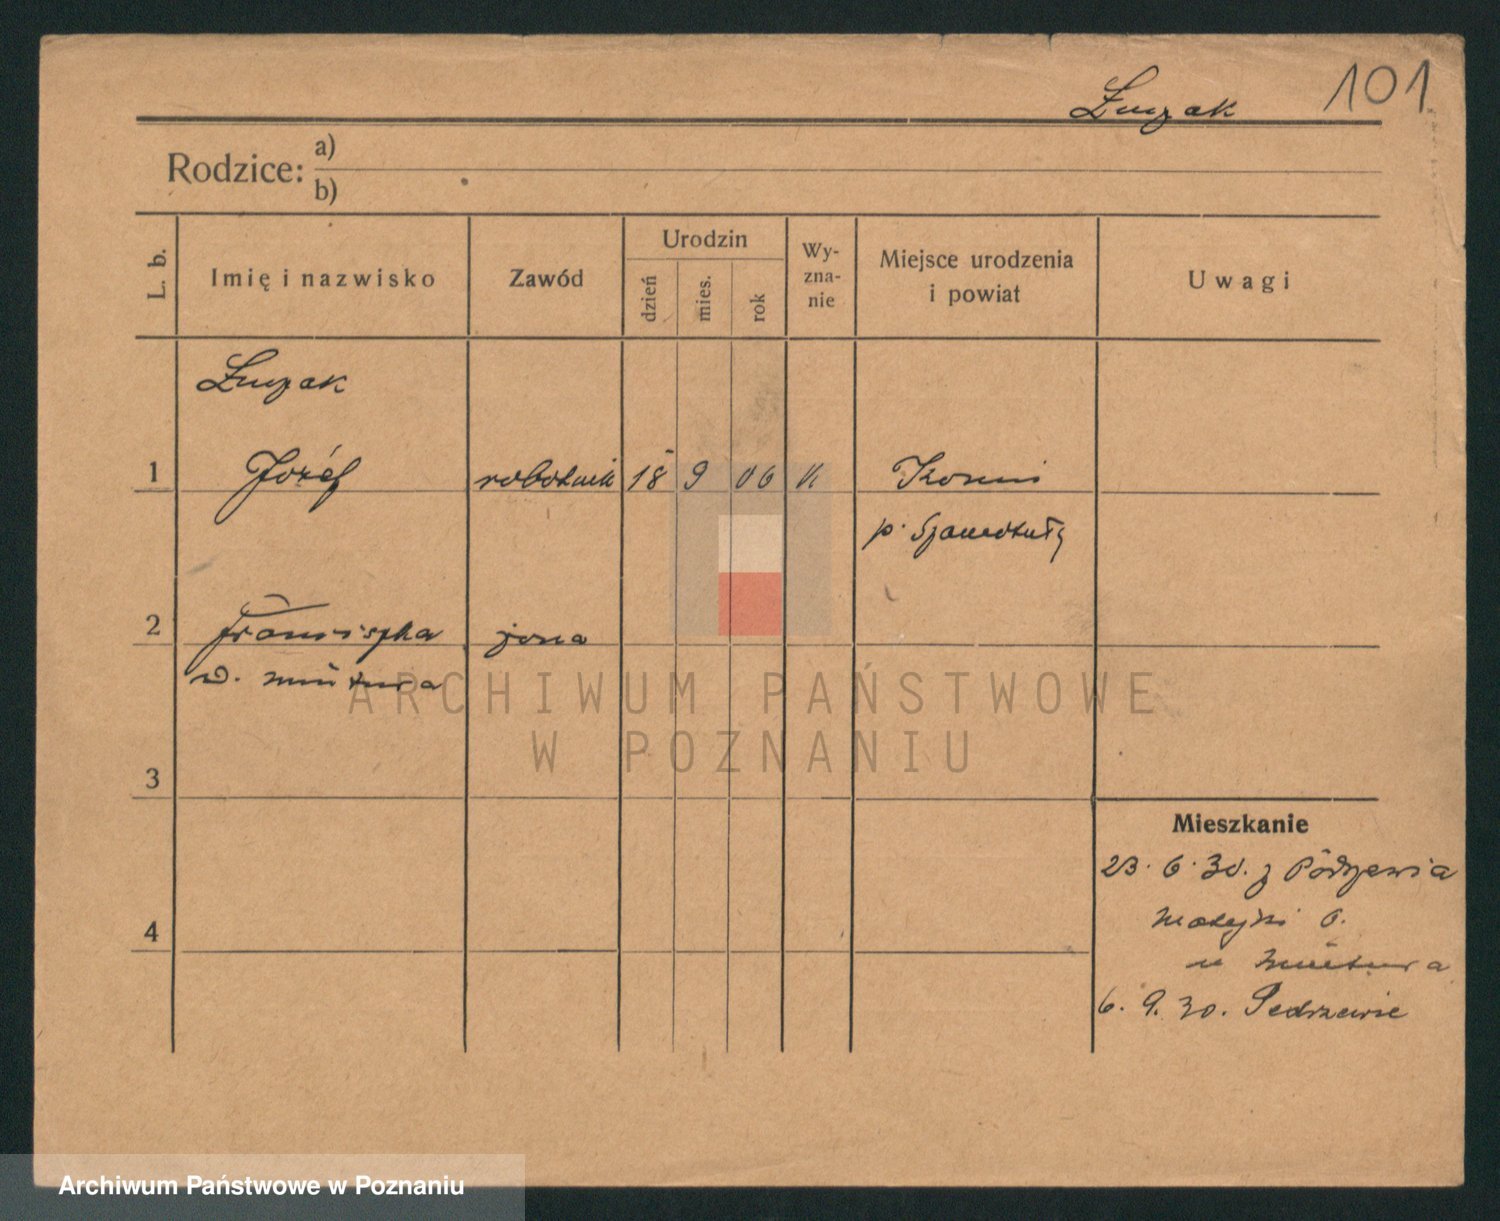 101
Łuczak
Rodzice:
a)
b)
L. b.
Imię i nazwisko
Zawód
Urodzin
dzień
mies.
rok
Wy-
zna-
nie
Miejsce urodzenia
i powiat
Uwagi
Łuczak
1 Józef robotnik 18 9 06 K
p. Szamotuły
2 Franciszka żona
3
4
Mieszkanie
23. 6. 30. z
Matejki 6.
6. 9. 30. Pedrzewie
ARCHIWUM PAŃSTWOWE
W POZNANIU
Archiwum Państwowe w Poznaniu